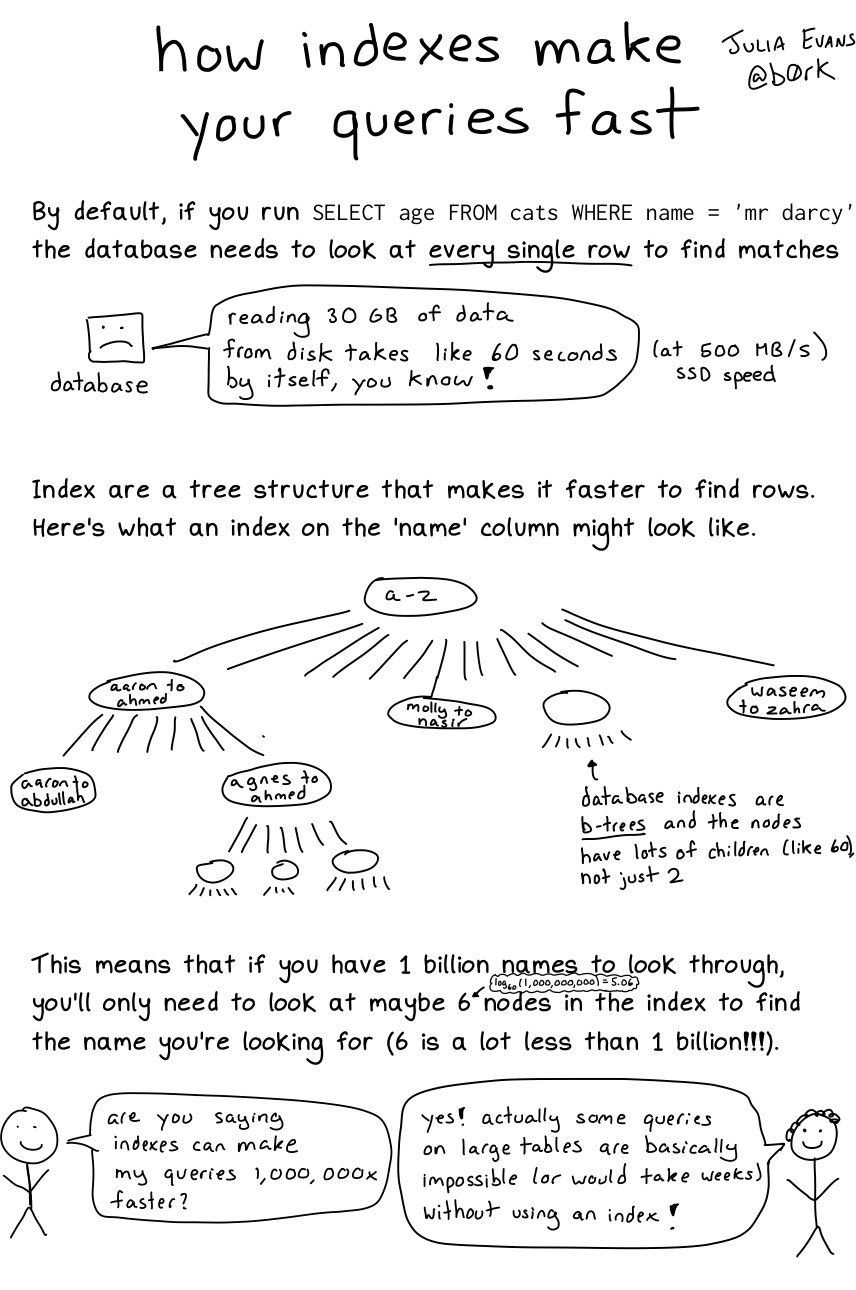 how indexes make
your queries fast
JULIA EVANS
@b0rk
By default, if you run SELECT age FROM cats WHERE name = 'mr darcy'
the database needs to look at every single row to find matches
database
reading 30 GB of data
from disk takes like 60 seconds
by itself, you know!
(at 500 MB/s)
SSD speed
Index are a tree structure that makes it faster to find rows.
Here's what an index on the 'name' column might look like.
a-z
aaron to
ahmed
molly to
nasir
waseem
to zahra
aaron to
abdullah
agnes to
ahmed
database indexes are
b-trees and the nodes
have lots of children (like 60),
not just 2
This means that if you have 1 billion names to look through,
log60(1,000,000,000) = 5.06
you'll only need to look at maybe 6 nodes in the index to find
the name you're looking for (6 is a lot less than 1 billion!!!).
are you saying
indexes can make
my queries 1,000,000x
faster?
yes! actually some queries
on large tables are basically
impossible (or would take weeks)
without using an index!